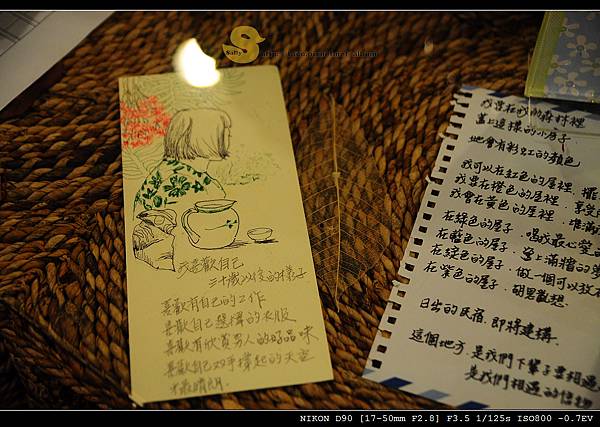 Sally
我喜歡自己
三十歲以後的樣子
喜歡有自己的工作
喜歡自己選擇的衣服
喜歡有欣賞男人的好品味
喜歡自己双手撐起的天空
才最晴朗.
我要在我的森林裡
蓋上這樣的小房子.
他會有彩虹的顏色
我可以在紅色的屋裡.
我要在橙色的屋裡.享受
我會在黃色的屋裡.準備
在綠色的房子.唱我最心愛
在藍色的房子.
在靛色的房子.做一個可以放
在紫色的房子.胡思亂想.
日出的民宿.即將建構.
這個地方.是我們下輩子要相遇
是我們相遇的
NIKON D90 [17-50mm F2.8] F3.5 1/125s ISO800 -0.7EV